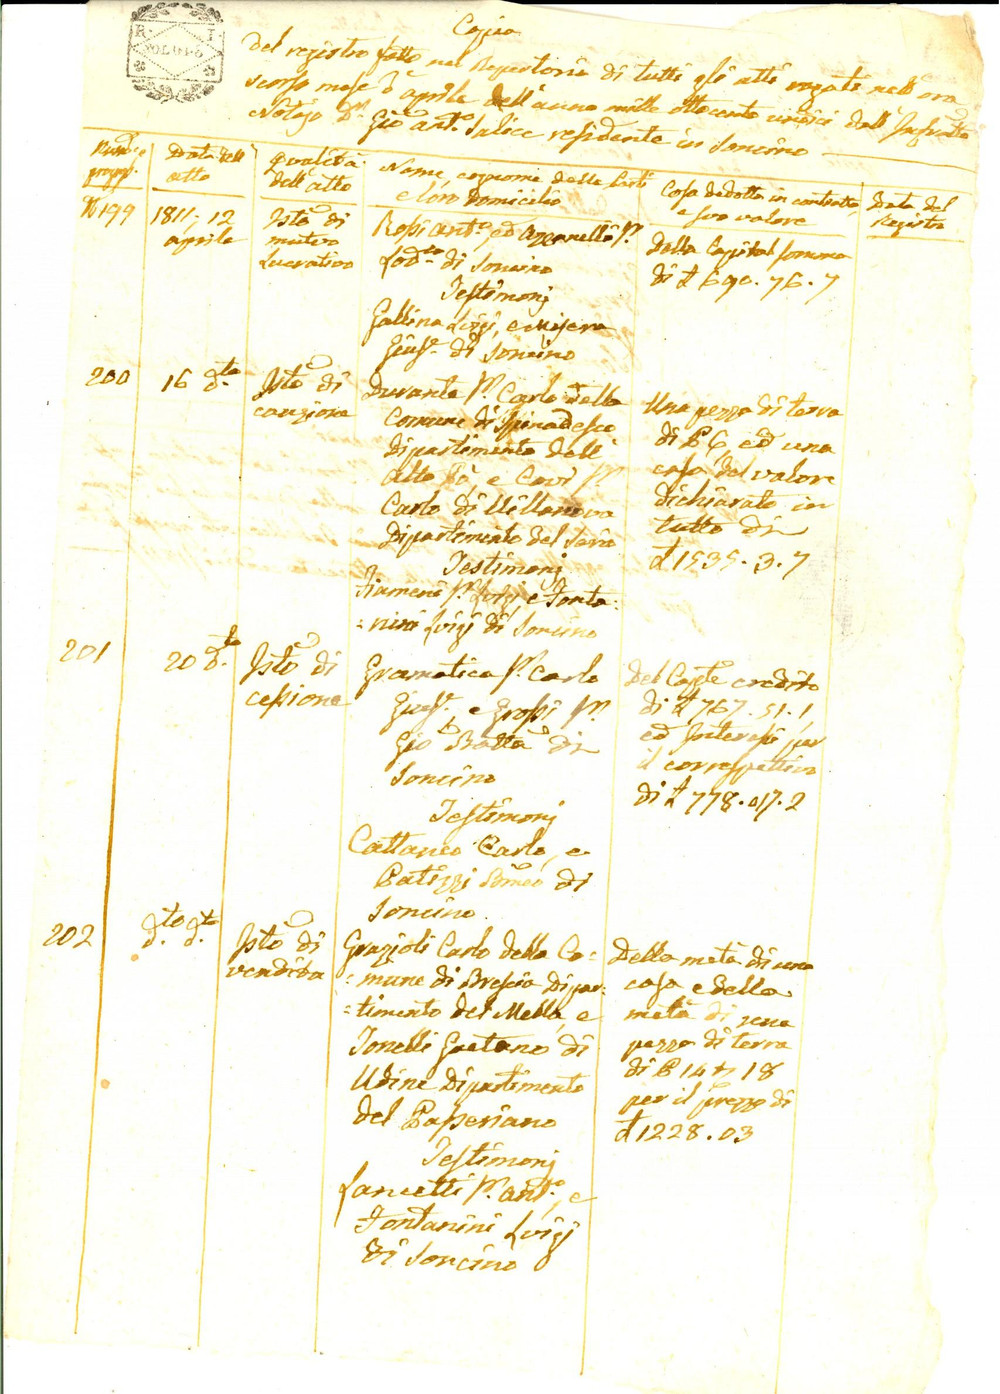 Copia
Del registro fatto nel Repertorio di tutti gli atti rogati nell' ora
scorso mese d'aprile dell'anno mille ottocento undici dall' Infrascto
Notajo Dr. Gio Anto. Salice residente in Soncino
Numo. e
progrs.
Data dell
atto
qualità
dell'atto
Nome, cognome delle Parti
e loro Domicilio
Cosa dedotta in contratto
e suo valore
Data del
Registro
N 199
1811. 12
aprile
Isto. di
mutuo
lucrativo
Rossi Anto. ed Azzanelli Sr.
Lodco. di Soncino
Testimonj
Gallina Luigi, e Misera
Giuse. di Soncino
Della Capital somma
di £ 690. 76. 7
200
16 dto.
Isto. di
cauzione
Durante Sr. Carlo della
Comune di Spinadesco
dipartimento dell'
Alto Pò, e Covi Sr.
Carlo di Villanova
Dipartimento del Serio
Testimonj
Fiameni Sr. Luigi e Fonta=
=nini Luigi di Soncino
Una pezza di terra
di P 6, ed una
casa del valore
dichiarato in
tutto di
£ 1535. 3. 7
201
20 dto.
Isto. di
cessione
Gramatica Sr. Carlo
Giuse. e Grossi Sr.
Gio Batta di
Soncino
Testimonj
Cattaneo Carlo, e
di
Soncino
Del Capte. credito
di £ 767. 51. 1
ed Interessi per
il correspettivo
di £ 778. 017. 2
202
dto. dto.
Isto. di
vendita
Grazzioli Carlo della Co=
=mune di Brescia Dipar=
=timento del Mella, e
Tonelli Gaetano di
Udine Dipartimento
del Passeriano
Testimonj
Lancetti Sr. Anto., e
Fontanini Luigi
di Soncino
Della metà di una
casa e della
metà di una
pezza di terra
di P 14 18
per il prezzo di
£ 1228. 03